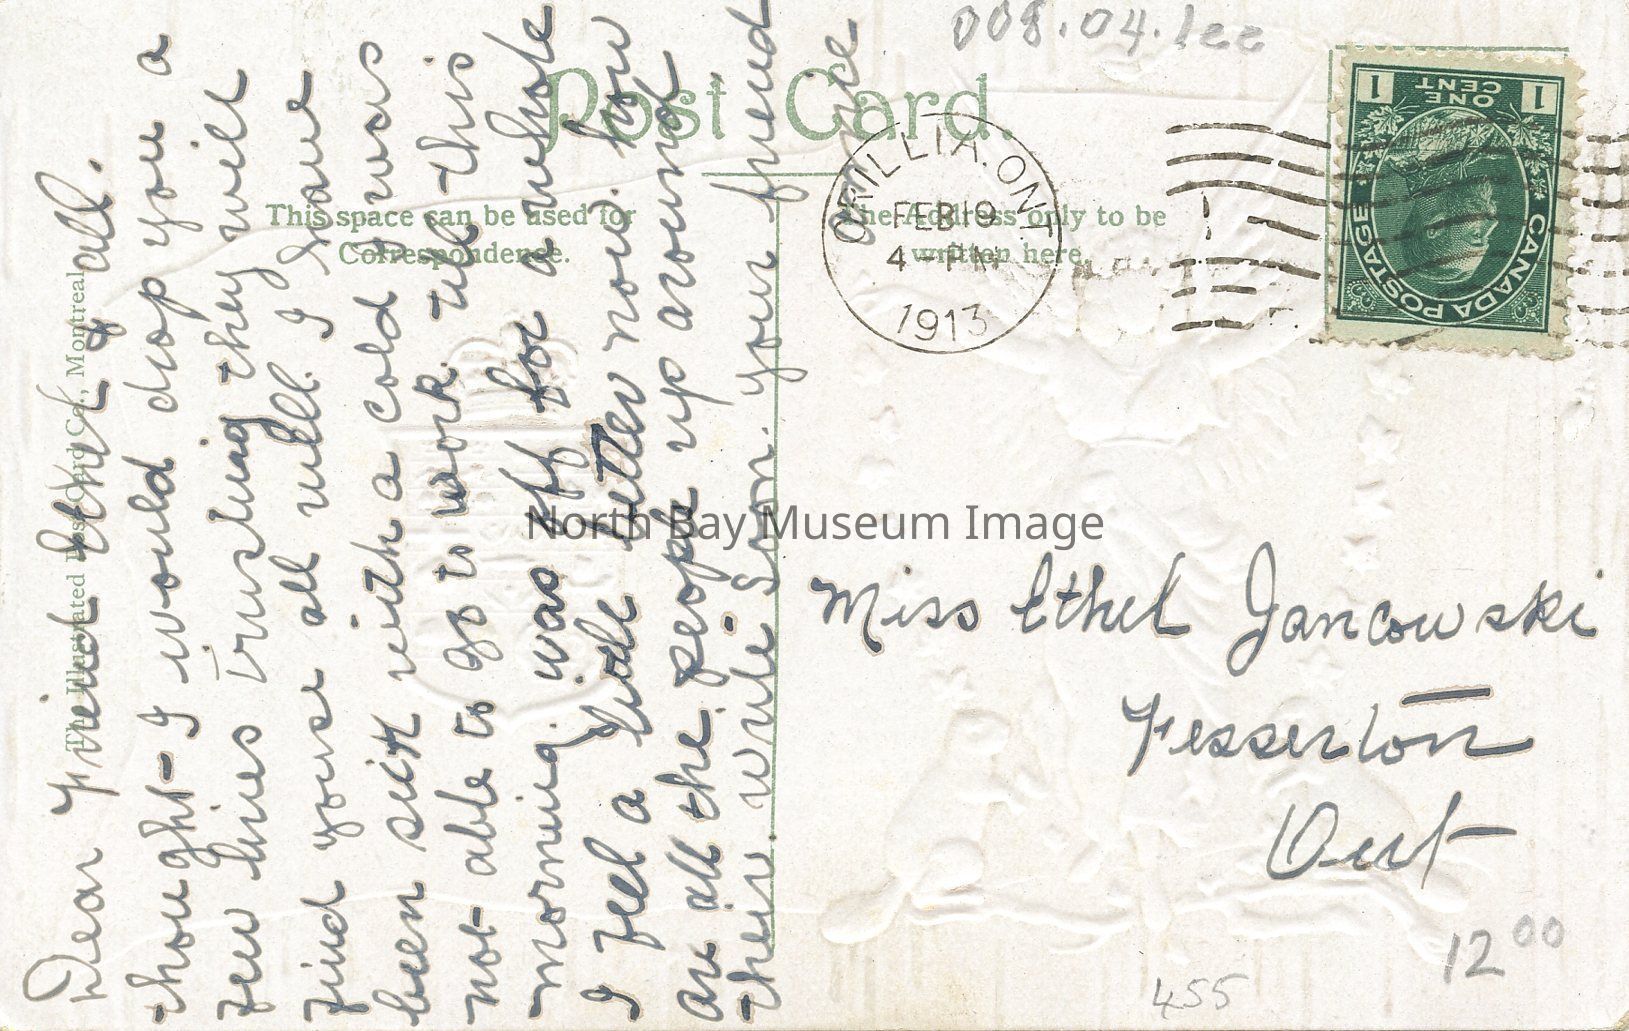 008.04.122
Post Card.
This space can be used for
Correspondence.
The Address only to be
written here.
The Illustrated Post Card Co., Montreal
ORILLIA. ONT
FEB 19
4 - PM
1913
CANADA POSTAGE
ONE
CENT
1 1
Dear Friend Ethel & all.
thought I would drop you a
few lines trusting they will
find youse all well. I have
been sick with a cold I was
not able to go to work till this
morning. was off for a whole
I feel a little better now. how
are all the people up around
there. write Soon. your friend
Miss Ethel Jancowski
Fesserton
Ont
North Bay Museum Image
12 00
455